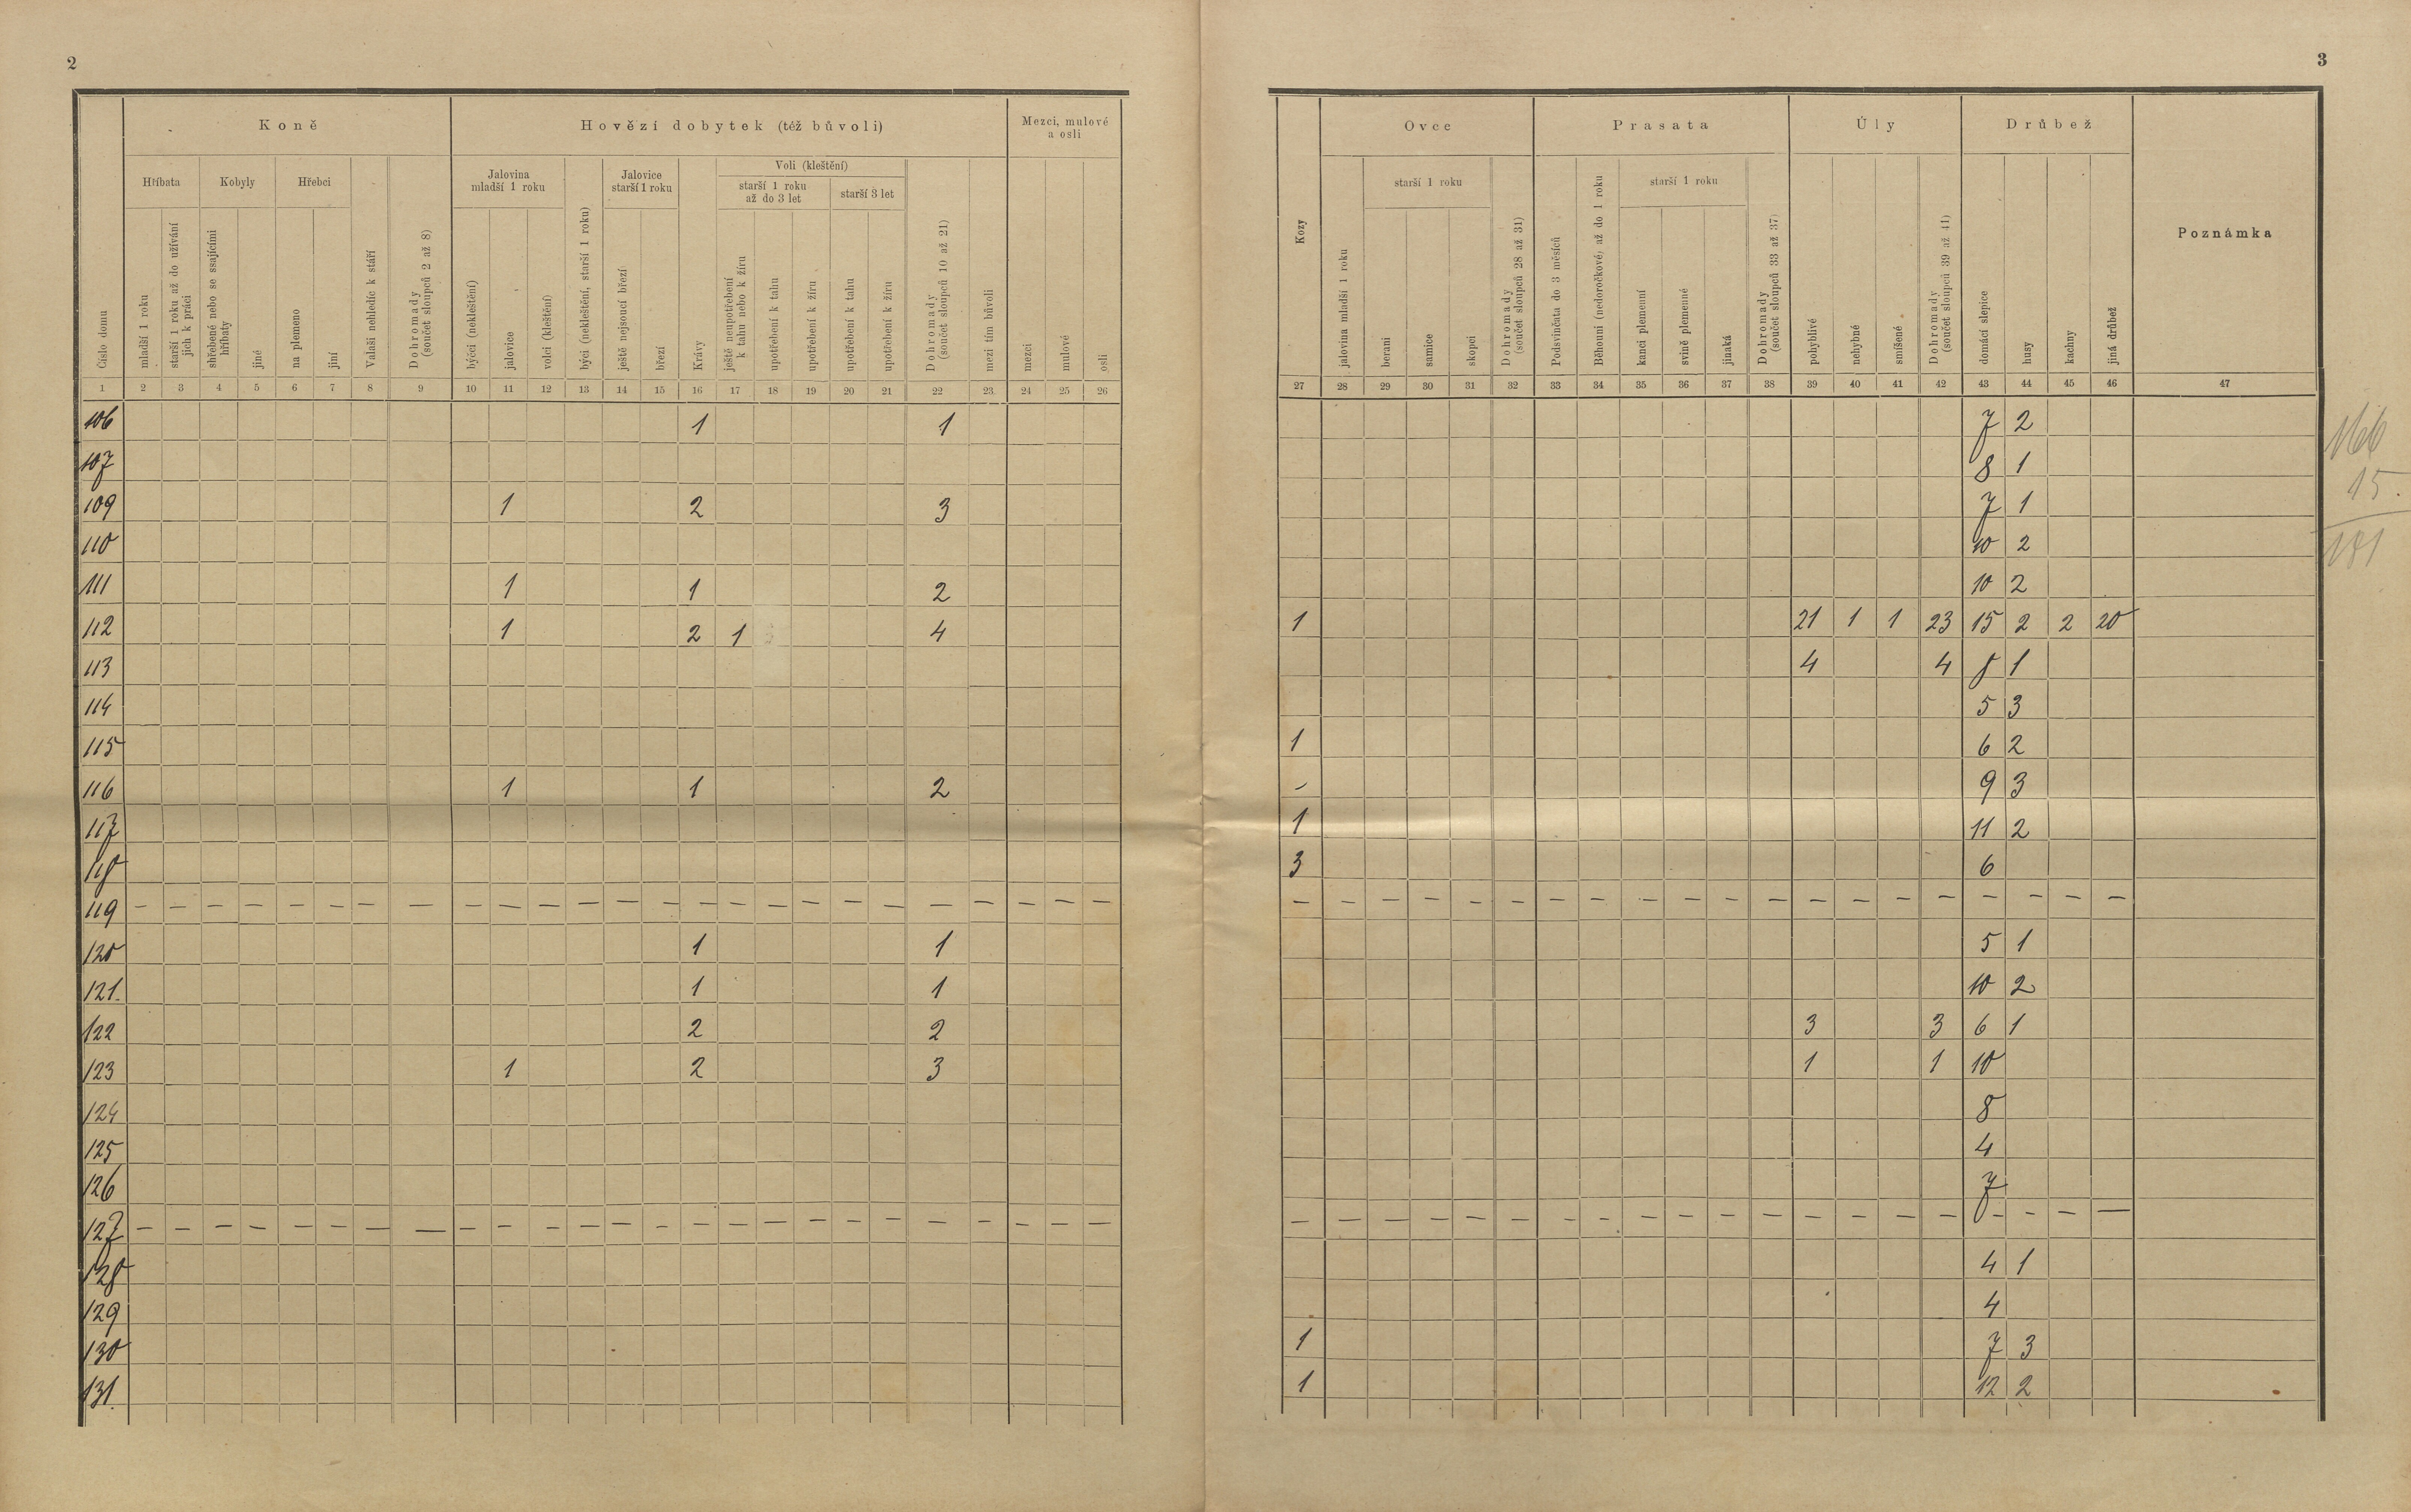 2
Koně
Hovězí dobytek (též bůvoli)
Mezci, mulové
a osli
Hříbata
Kobyly
Hřebci
Jalovina
mladší 1 roku
Jalovice
starší 1 roku
Voli (kleštění)
starší 1 roku
až do 3 let
starší 3 let
Číslo domu
mladší 1 roku
starší 1 roku až do užívání
jich k práci
shřebené nebo se ssajícími
hříbaty
jiné
na plemeno
jiní
Valaši nehledíc k stáří
Dohromady
(součet sloupců 2 až 8)
býčci (nekleštění)
jalovice
volci (kleštění)
býci (nekleštění, starší 1 roku)
ještě nejsoucí březí
březí
Krávy
ještě neupotřebení
k tahu nebo k žíru
upotřebení k tahu
upotřebení k žíru
upotřebení k tahu
upotřebení k žíru
Dohromady
(součet sloupců 10 až 21)
mezi tím bůvoli
mezci
mulové
osli
1 2 3 4 5 6 7 8 9 10 11 12 13 14 15 16 17 18 19 20 21 22 23 24 25 26
106 1 1
107
109 1 2 3
110
111 1 1 2
112 1 2 1 4
113
114
115
116 1 1 2
117
118
119 — — — — — — — — — — — — — — — — — — — — — — — — —
120 1 1
121. 1 1
122 2 2
123 1 2 3
124
125
126
127 — — — — — — — — — — — — — — — — — — — — — — — — —
128
129
130
131.
3
Ovce
Prasata
Úly
Drůbež
Poznámka
starší 1 roku
starší 1 roku
Kozy
jalovina mladší 1 roku
berani
samice
skopci
Dohromady
(součet sloupců 28 až 31)
Podsvinčata do 3 měsíců
Běhouni (nedoročkové) až do 1 roku
kanci plemenní
svině plemenné
jinaká
Dohromady
(součet sloupců 33 až 37)
pohyblivé
nehybné
smíšené
Dohromady
(součet sloupců 39 až 41)
domácí slepice
husy
kachny
jiná drůbež
27 28 29 30 31 32 33 34 35 36 37 38 39 40 41 42 43 44 45 46 47
7 2
8 1
7 1
10 2
10 2
1 21 1 1 23 15 2 2 20
4 4 8 1
5 3
1 6 2
- 9 3
1 11 2
3 6
— — — — — — — — — — — — — — — — — — — —
5 1
10 2
3 3 6 1
1 1 10
8
4
7
— — — — — — — — — — — — — — — — — — — —
4 1
4
1 7 3
1 12 2
166
15.
181